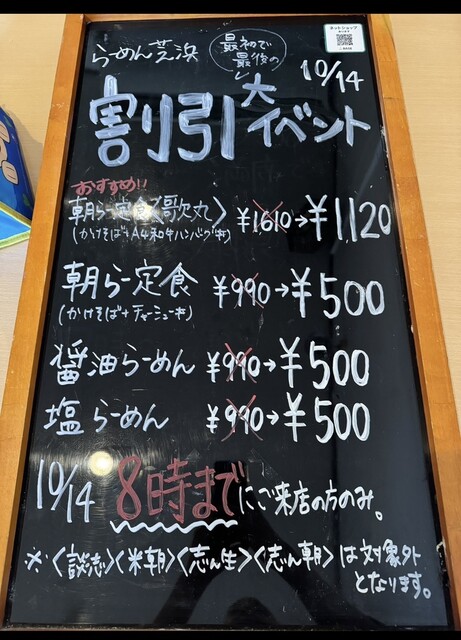 ネットショップ
らーめん芝浜
最初で
最後の
10/14
割引大イベント
おすすめ!!
朝らー定食〈歌丸〉 ¥1610→¥1120
(かけそば+A4和牛ハンバーグ丼)
朝らー定食 ¥990→¥500
(かけそば+チャーシュー丼)
醤油らーめん ¥990→¥500
塩らーめん ¥990→¥500
10/14 8時までにご来店の方のみ。
※〈談志〉〈米朝〉〈志ん生〉〈志ん朝〉は対象外
となります。